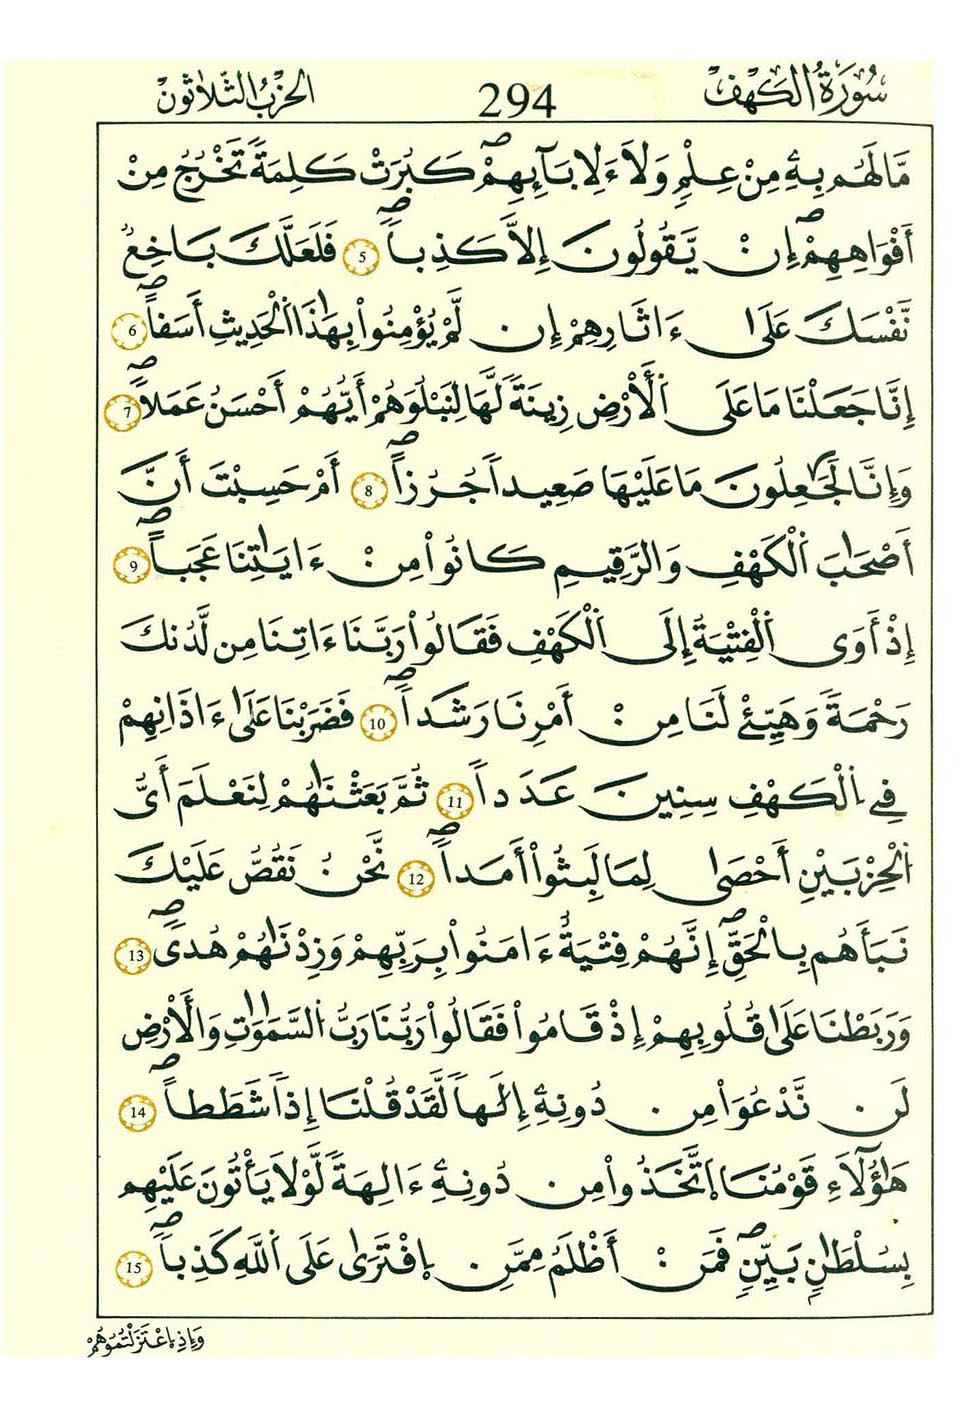 سُورَةُ الكَهْفِ 294 الحِزْبُ الثَّلاَثُونَ
مَّا لَهُم بِهِۦ مِنْ عِلْمٖ وَلَا ءَلِابَآئِهِمْۖ كَبُرَتْ كَلِمَةٗ تَخْرُجُ مِنْ
أَفْوَاهِهِمْۖ إِنْ يَّقُولُونَ إِلاَّ كَذِباٗۖ 5 فَلَعَلَّكَ بَاخِعٞ
نَّفْسَكَ عَلَىٰ ءَاثَارِهِمْ إِن لَّمْ يُؤْمِنُواْ بِهَٰذَا اَ۬لْحَدِيثِ أَسَفاًۖ 6
إِنَّا جَعَلْنَا مَا عَلَى اَ۬لْأَرْضِ زِينَةٗ لَّهَا لِنَبْلُوَهُمْ أَيُّهُمْ أَحْسَنُ عَمَلاٗۖ 7
وَإِنَّا لَجَٰعِلُونَ مَا عَلَيْهَا صَعِيداٗ جُرُزاًۖ 8 أَمْ حَسِبْتَ أَنَّ
أَصْحَٰبَ اَ۬لْكَهْفِ وَالرَّقِيمِ كَانُواْ مِنْ ءَايَٰتِنَا عَجَباًۖ 9
إِذْ أَوَى اَ۬لْفِتْيَةُ إِلَى اَ۬لْكَهْفِ فَقَالُواْ رَبَّنَا ءَاتِنَا مِن لَّدُنكَ
رَحْمَةٗ وَهَيِّئْ لَنَا مِنْ أَمْرِنَا رَشَداٗۖ 10 فَضَرَبْنَا عَلَىٰ ءَاذَانِهِمْ
فِے اِ۬لْكَهْفِ سِنِينَ عَدَداٗ 11 ثُمَّ بَعَثْنَٰهُمْ لِنَعْلَمَ أَيُّ
اُ۬لْحِزْبَيْنِ أَحْصَىٰ لِمَا لَبِثُواْ أَمَداٗۖ 12 نَّحْنُ نَقُصُّ عَلَيْكَ
نَبَأَهُم بِالْحَقِّۖ إِنَّهُمْ فِتْيَةٌ ءَامَنُواْ بِرَبِّهِمْ وَزِدْنَٰهُمْ هُدىٗۖ 13
وَرَبَطْنَا عَلَىٰ قُلُوبِهِمْ إِذْ قَامُواْ فَقَالُواْ رَبُّنَا رَبُّ اُ۬لسَّمَٰوَٰتِ وَالْأَرْضِ
لَن نَّدْعُوَاْ مِن دُونِهِۦ إِلَٰهاٗ لَّقَدْ قُلْنَا إِذاٗ شَطَطاًۖ 14
هَٰؤُلَآءِ قَوْمُنَا اَ۪تَّخَذُواْ مِن دُونِهِۦ ءَالِهَةٗ لَّوْلَا يَأْتُونَ عَلَيْهِم
بِسُلْطَٰنِۢ بَيِّنٖۖ فَمَنْ أَظْلَمُ مِمَّنِ اِ۪فْتَرَىٰ عَلَى اَ۬للَّهِ كَذِباٗۖ 15
وَإِذِ اِ۪عْتَزَلْتُمُوهُمْ